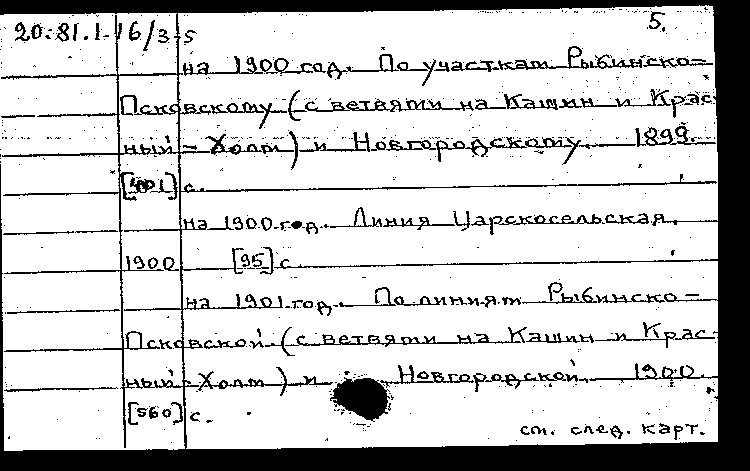 20.81.1-16/3-5 5.
на 1900 год. По участкам Рыбинско-
Псковскому (с ветвями на Кашин и Крас-
ный-Холм) и Новгородскому. 1899.
[401] с.
на 1900 год. Линия Царскосельская.
1900 [95] с.
на 1901 год. По линиям Рыбинско-
Псковской (с ветвями на Кашин и Крас-
ный-Холм) и Новгородской. 1900.
[560] с.
см. след. карт.